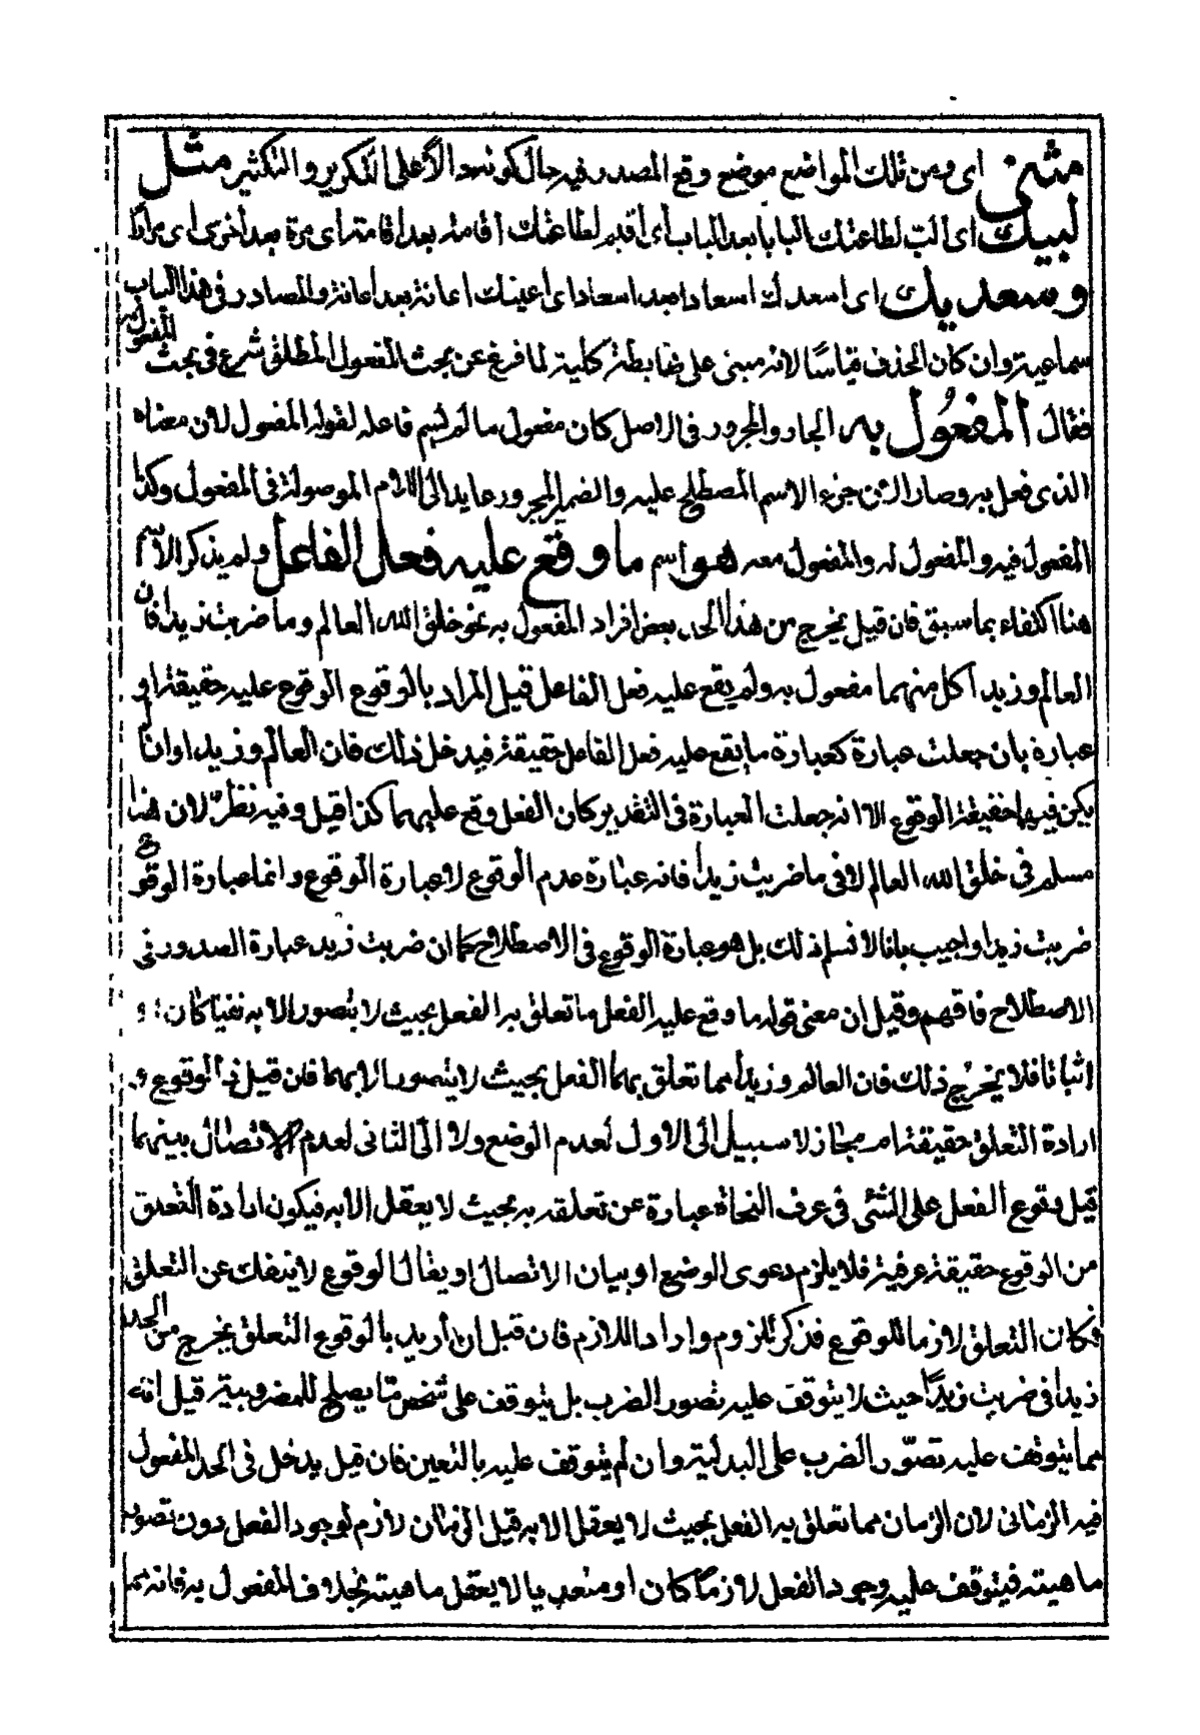 مثنى اى ومن تلك المواضع موضع وقع المصدر فيه حال كونه دالا على التكرير والتكثير مثل
لبيك اى الب لطاعتك البابا بعد الباب اى اقيم لطاعتك اقامة بعد اقامة اى مرة بعد اخرى اى مرارا
وسعديك اى اسعدك اسعادا بعد اسعاد اى اعينك اعانة بعد اعانة والمصادر فى هذا الباب
سماعية وان كان الحذف قياسًا لانه مبنى على ضابطة كلية لما فرغ عن بحث المفعول المطلق شرع فى بحث المفعول به
فقال المفعُول به الجار والمجرور فى الاصل كان مفعول ما لم يسم فاعله لقوله المفعول لان معناه
الذى فعل به وصار الآن جزء الاسم المصطلح عليه والضمير المجرور عايد الى اللام الموصولة فى المفعول وكذا
المفعول فيه والمفعول له والمفعول معه هو اسم ما وقع عليه فعل الفاعل ولم يذكر الاسم
هنا اكتفاء بما سبق فان قيل يخرج من هذا الحد بعض افراد المفعول به نحو خلق الله العالم وما ضربت زيدا فان
العالم وزيدا كل منهما مفعول به ولم يقع عليه فعل الفاعل قيل المراد بالوقوع الوقوع عليه حقيقة او
عبارة بان جعلت عبارة كعبارة ما يقع عليه فعل الفاعل حقيقة فيدخل ذلك فان العالم وزيدا وان لم
يكن فيهما حقيقة الوقوع الا انه جعلت العبارة فى التقدير كان الفعل وقع عليهما كذا قيل وفيه نظر لان هذا
مسلم فى خلق الله العالم لا فى ما ضربت زيدا فانه عبارة عدم الوقوع لا عبارة الوقوع وانما عبارة الوقوع
ضربت زيدا واجيب بانا لا نسلم ذلك بل هو عبارة الوقوع فى الاصطلاح كما ان ضربت زيد عبارة الصدور فى
الاصطلاح فافهم وقيل ان معنى قوله ما وقع عليه الفعل ما تعلق به الفعل بحيث لا يتصور الا به نفيا كان او
اثباتا فلا يخرج ذلك فان العالم وزيدا مما تعلق بهما الفعل بحيث لا يتصور الا بهما فان قيل ذكر الوقوع و
ارادة التعلق حقيقة ام مجاز لا سبيل الى الاول لعدم الوضع ولا الى الثانى لعدم الاتصال بينهما
قيل وقوع الفعل على الشئ فى عرف النحاة عبارة عن تعلقه به بحيث لا يعقل الا به فيكون ارادة التعلق
من الوقوع حقيقة عرفية فلا يلزم دعوى الوضع او بيان الاتصال او يقال الوقوع لا ينفك عن التعلق
فكان التعلق لازما للوقوع فذكر الملزوم واراد اللازم فان قيل ان اريد بالوقوع التعلق يخرج من الحد
زيدا فى ضربت زيدًا حيث لا يتوقف عليه تصور الضرب بل يتوقف على شخص ما يصلح للمضروبية قيل انه
مما يتوقف عليه تصوّر الضرب على البدلية وان لم يتوقف عليه بالتعين فان قيل يدخل فى الحد المفعول
فيه الزمانى لان الزمان مما تعلق به الفعل بحيث لا يعقل الا به قيل الزمان لازم لوجود الفعل دون تصور
ماهيته فيتوقف عليه وجود الفعل لازمًا كان او متعديا لا يعقل ماهيته بخلاف المفعول به فانه مما